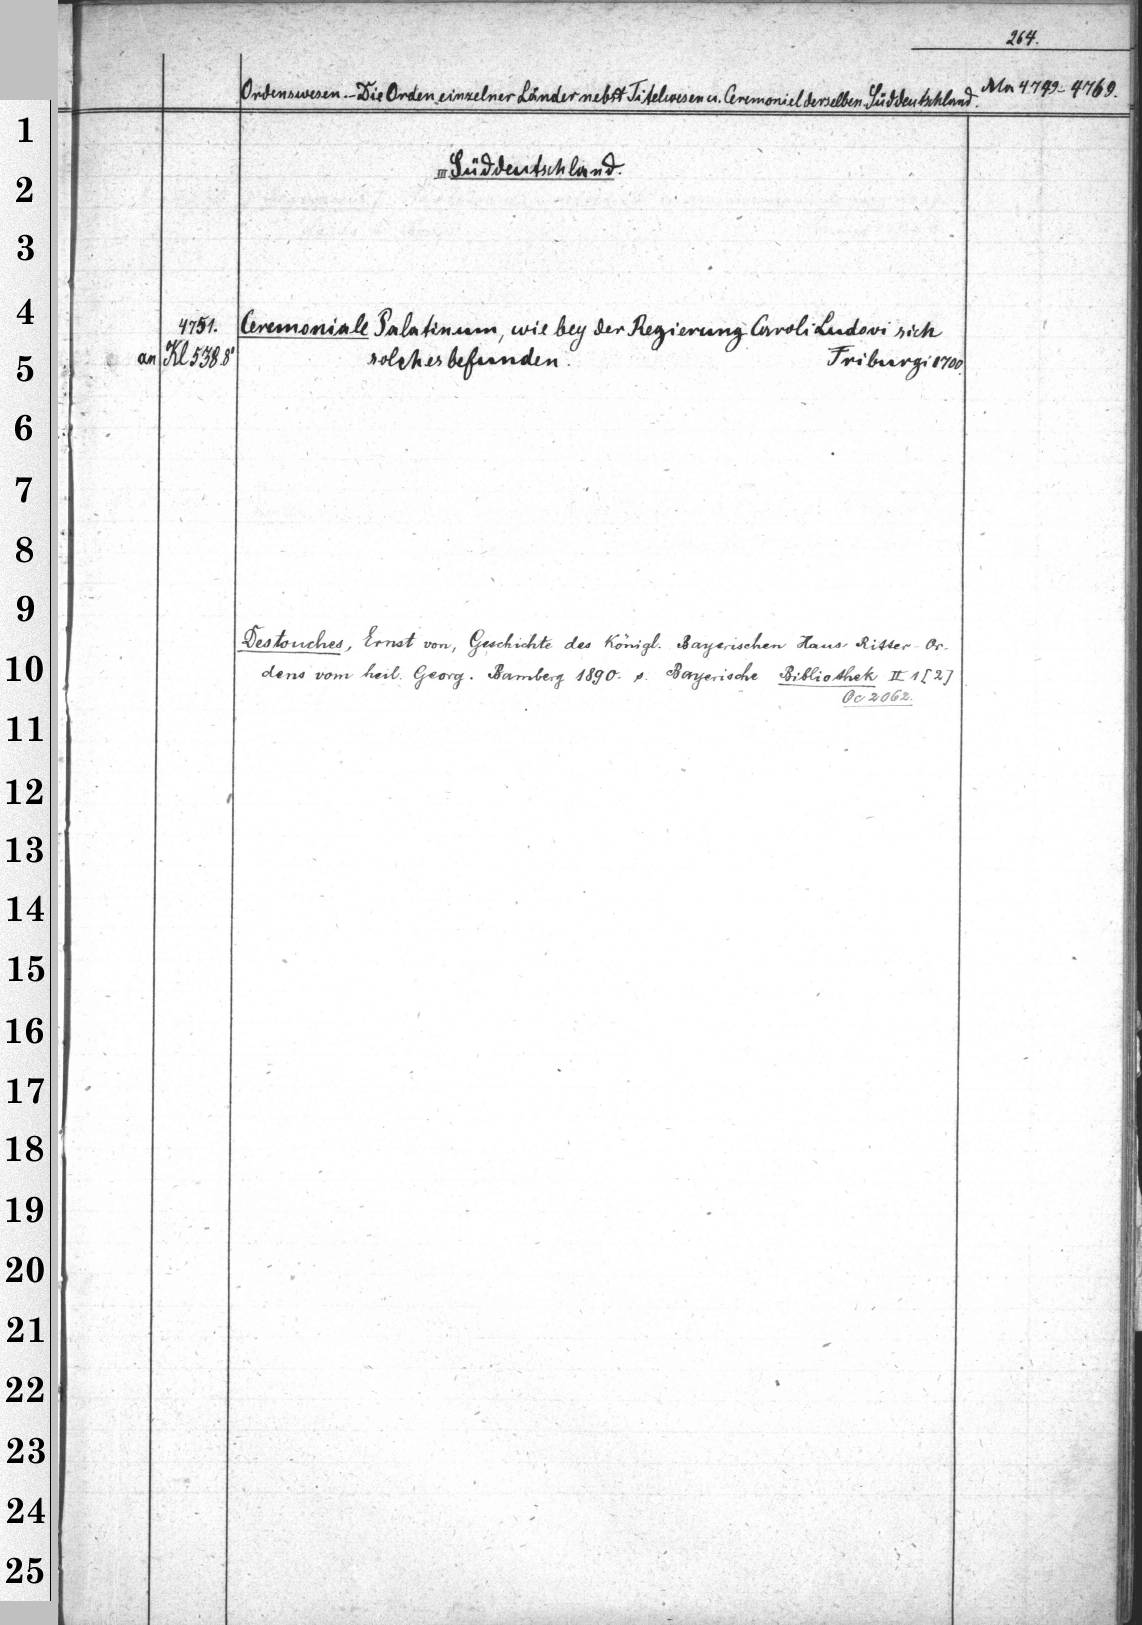 264.
Ordenswesen. – Die Orden einzelner Länder nebst Titelwesen u. Ceremoniel derselben. Süddeutschland.
Mn 4749–4769.
1
III. Süddeutschland.
2
3
4
4751. Ceremoniale Palatinum, wie bey der Regierung Caroli Ludovi sich
an Kl 538.8° solches befunden. Friburgi 1700.
5
6
7
8
9
Destouches, Ernst von, Geschichte des Königl. Bayerischen Haus-Ritter-Or-
10
dens vom heil. Georg. Bamberg 1890. s. Bayerische Bibliothek II 1 [2]
Oc 2062.
11
12
13
14
15
16
17
18
19
20
21
22
23
24
25